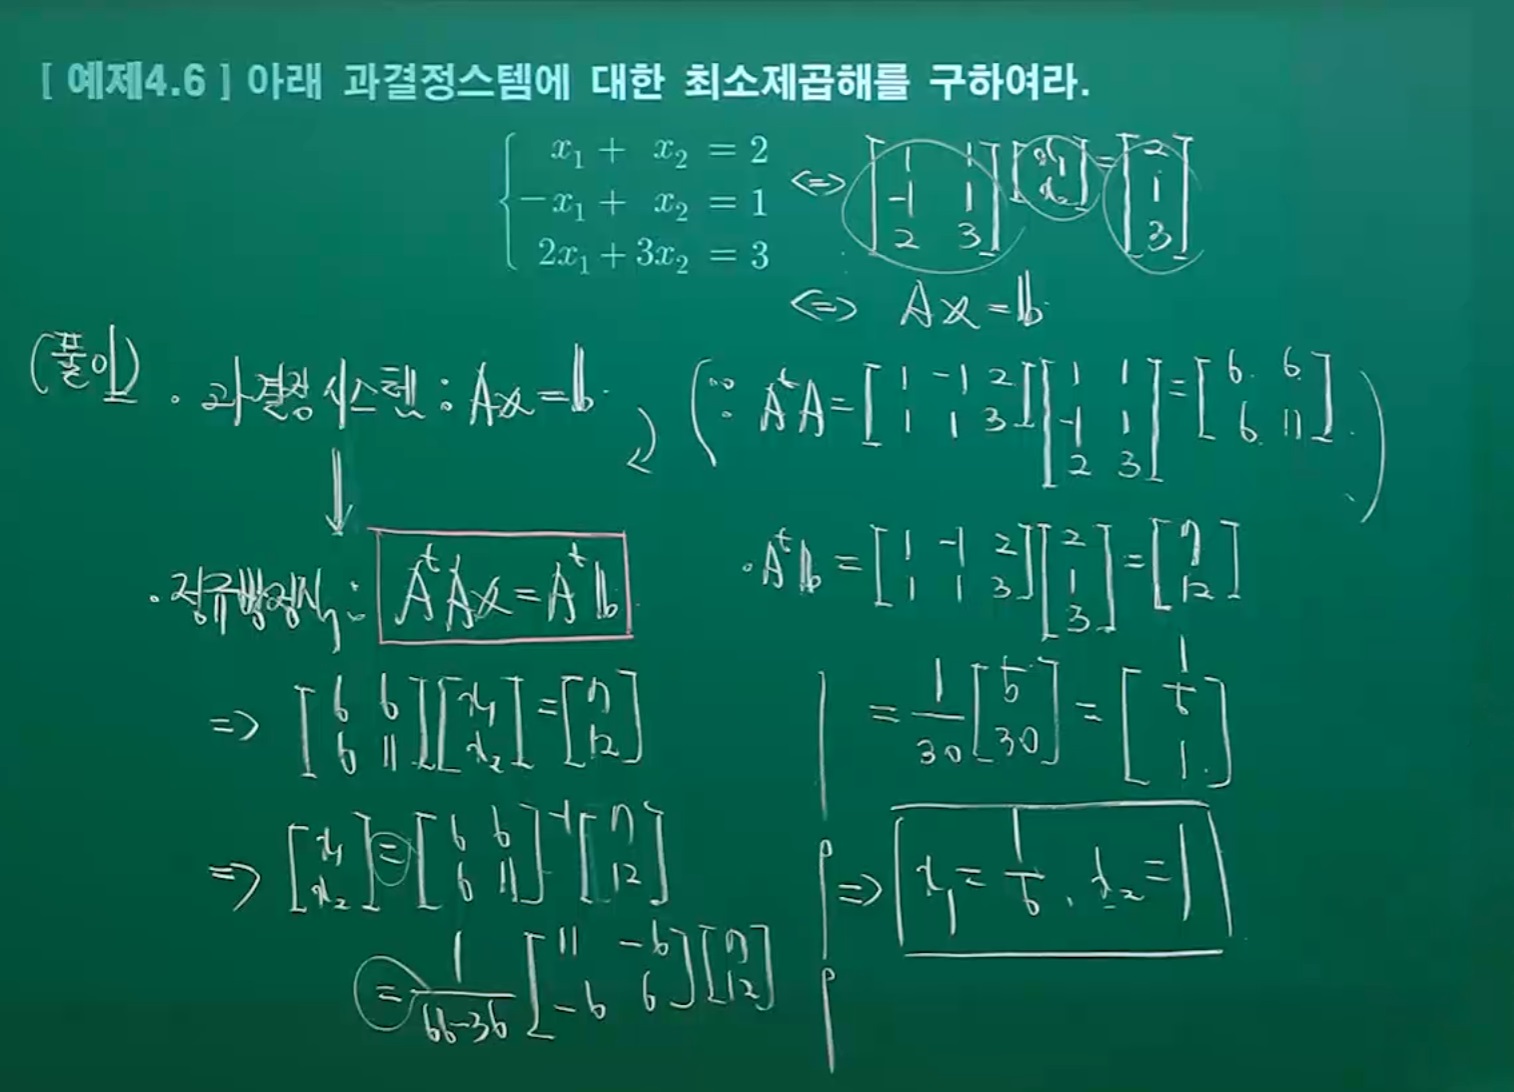 [ 예제4.6 ] 아래 과결정스템에 대한 최소제곱해를 구하여라.
x₁ + x₂ = 2
−x₁ + x₂ = 1
2x₁ + 3x₂ = 3
<=> [1 1; -1 1; 2 3] [x₁; x₂] = [2; 1; 3]
<=> Ax = b
(풀이)
· 과결정시스템 : Ax = b
(∵ AᵗA = [1 -1 2; 1 1 3] [1 1; -1 1; 2 3] = [6 6; 6 11] )
· Aᵗb = [1 -1 2; 1 1 3] [2; 1; 3] = [7; 12]
· 정규방정식 : AᵗAx = Aᵗb
=> [6 6; 6 11] [x₁; x₂] = [7; 12]
=> [x₁; x₂] = [6 6; 6 11]⁻¹ [7; 12]
= 1/(66-36) [11 -6; -6 6] [7; 12]
= 1/30 [5; 30] = [1/5; 1]
=> x₁ = 1/5 , x₂ = 1